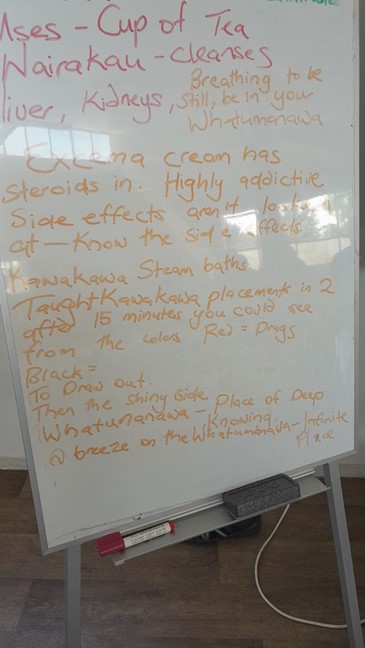 Uses - Cup of Tea
Wairakau - cleanses
liver, Kidneys,
Breathing to be
still, be in your
Whatumanawa
Exzema cream has
Steroids in. Highly addictive
Side effects aren't looked
at - Know the side effects
Kawakawa Steam baths
Taught Kawakawa placement in 2
after 15 minutes you could see
from the colors Red = Drugs
Black =
To Draw out.
Then the shiny side Place of Deep
Whatumanawa - Knowing.
@ breeze on the Whatumanawa - Infinite